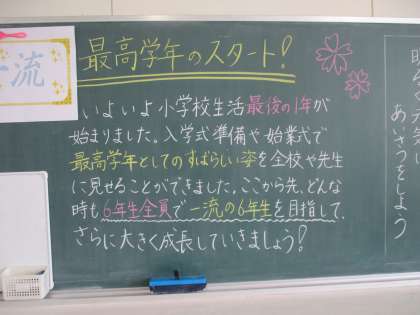 最高学年のスタート!
いよいよ小学校生活最後の1年が
始まりました。入学式準備や始業式で
最高学年としてのすばらしい姿を全校や先生
に見せることができました。ここから先、どんな
時も6年生全員で一流の6年生を目指して、
さらに大きく成長していきましょう!
流
あいさつをしよう